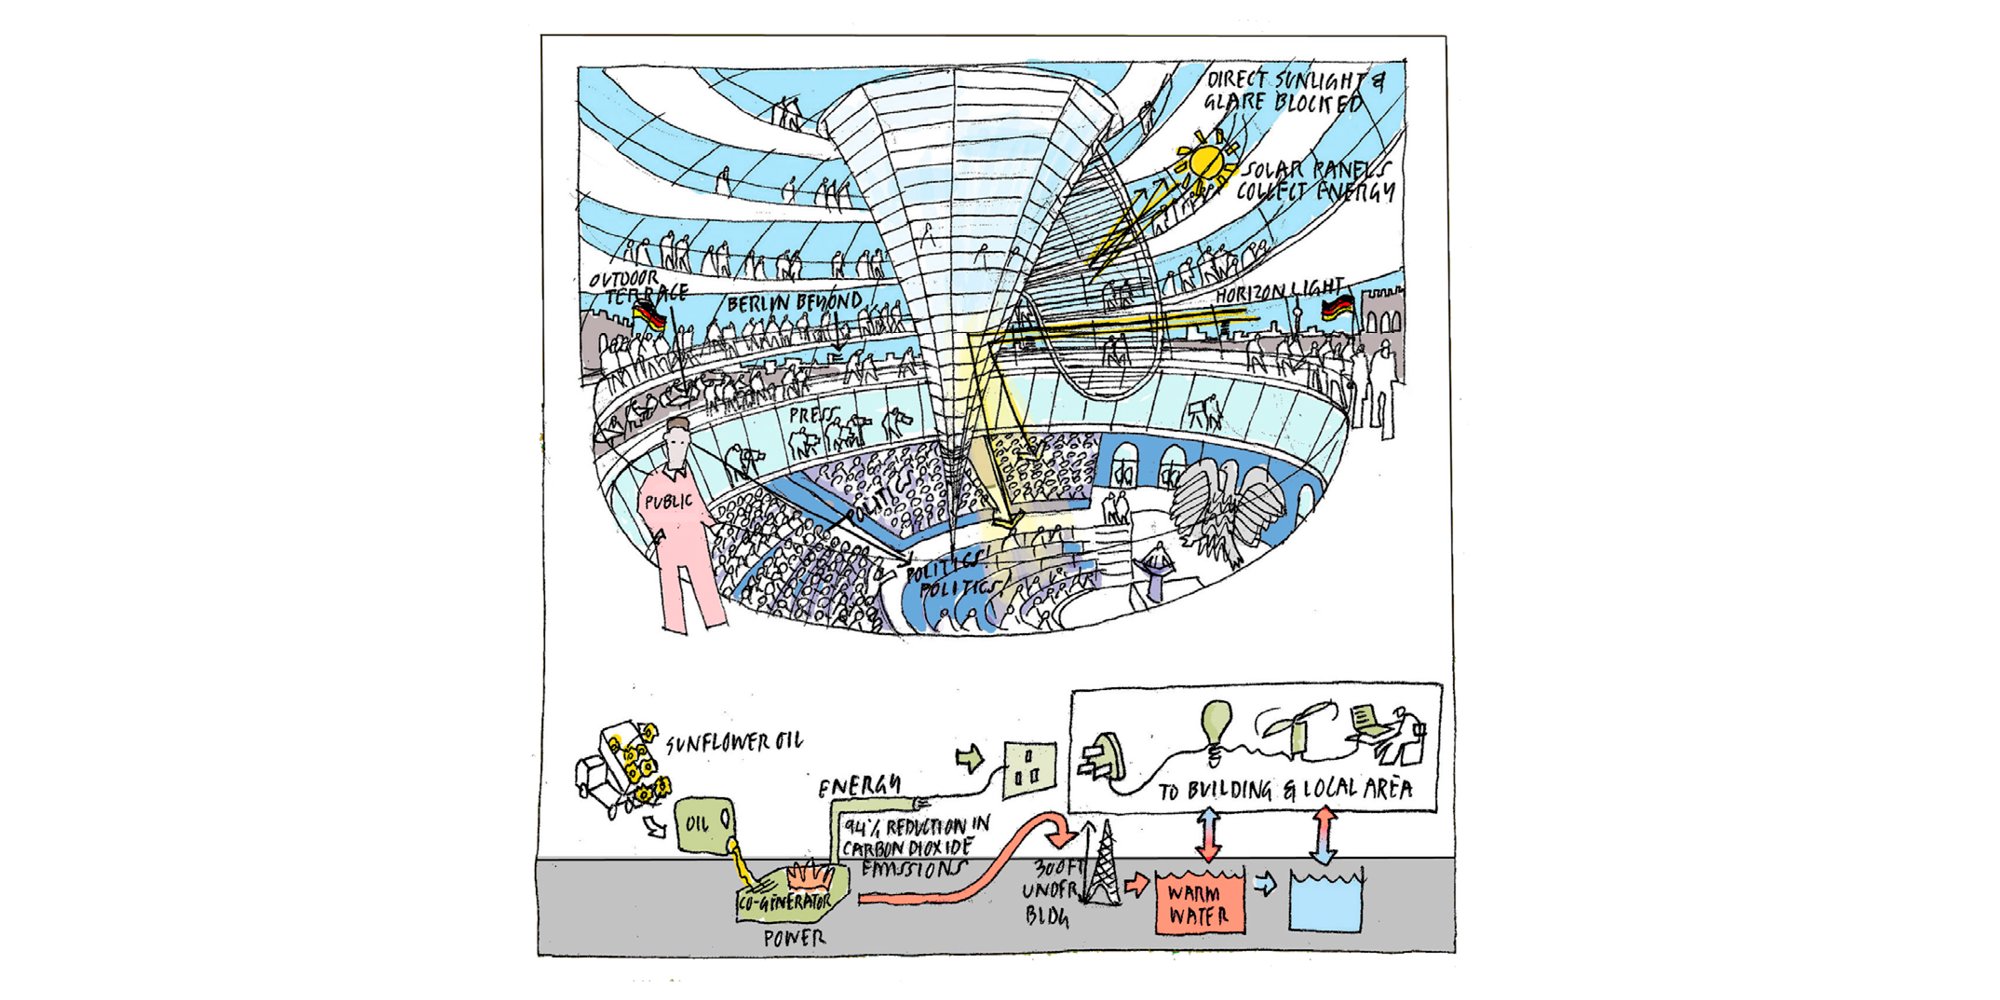 DIRECT SUNLIGHT &
GLARE BLOCKED
SOLAR PANELS
COLLECT ENERGY
OUTDOOR
TERRACE
BERLIN BEYOND
HORIZON LIGHT
PRESS
PUBLIC
POLITICS
POLITICS
POLITICS
SUNFLOWER OIL
OIL
ENERGY
94% REDUCTION IN
CARBON DIOXIDE
EMISSIONS
CO-GENERATOR
POWER
TO BUILDING & LOCAL AREA
300FT
UNDER
BLDG
WARM
WATER